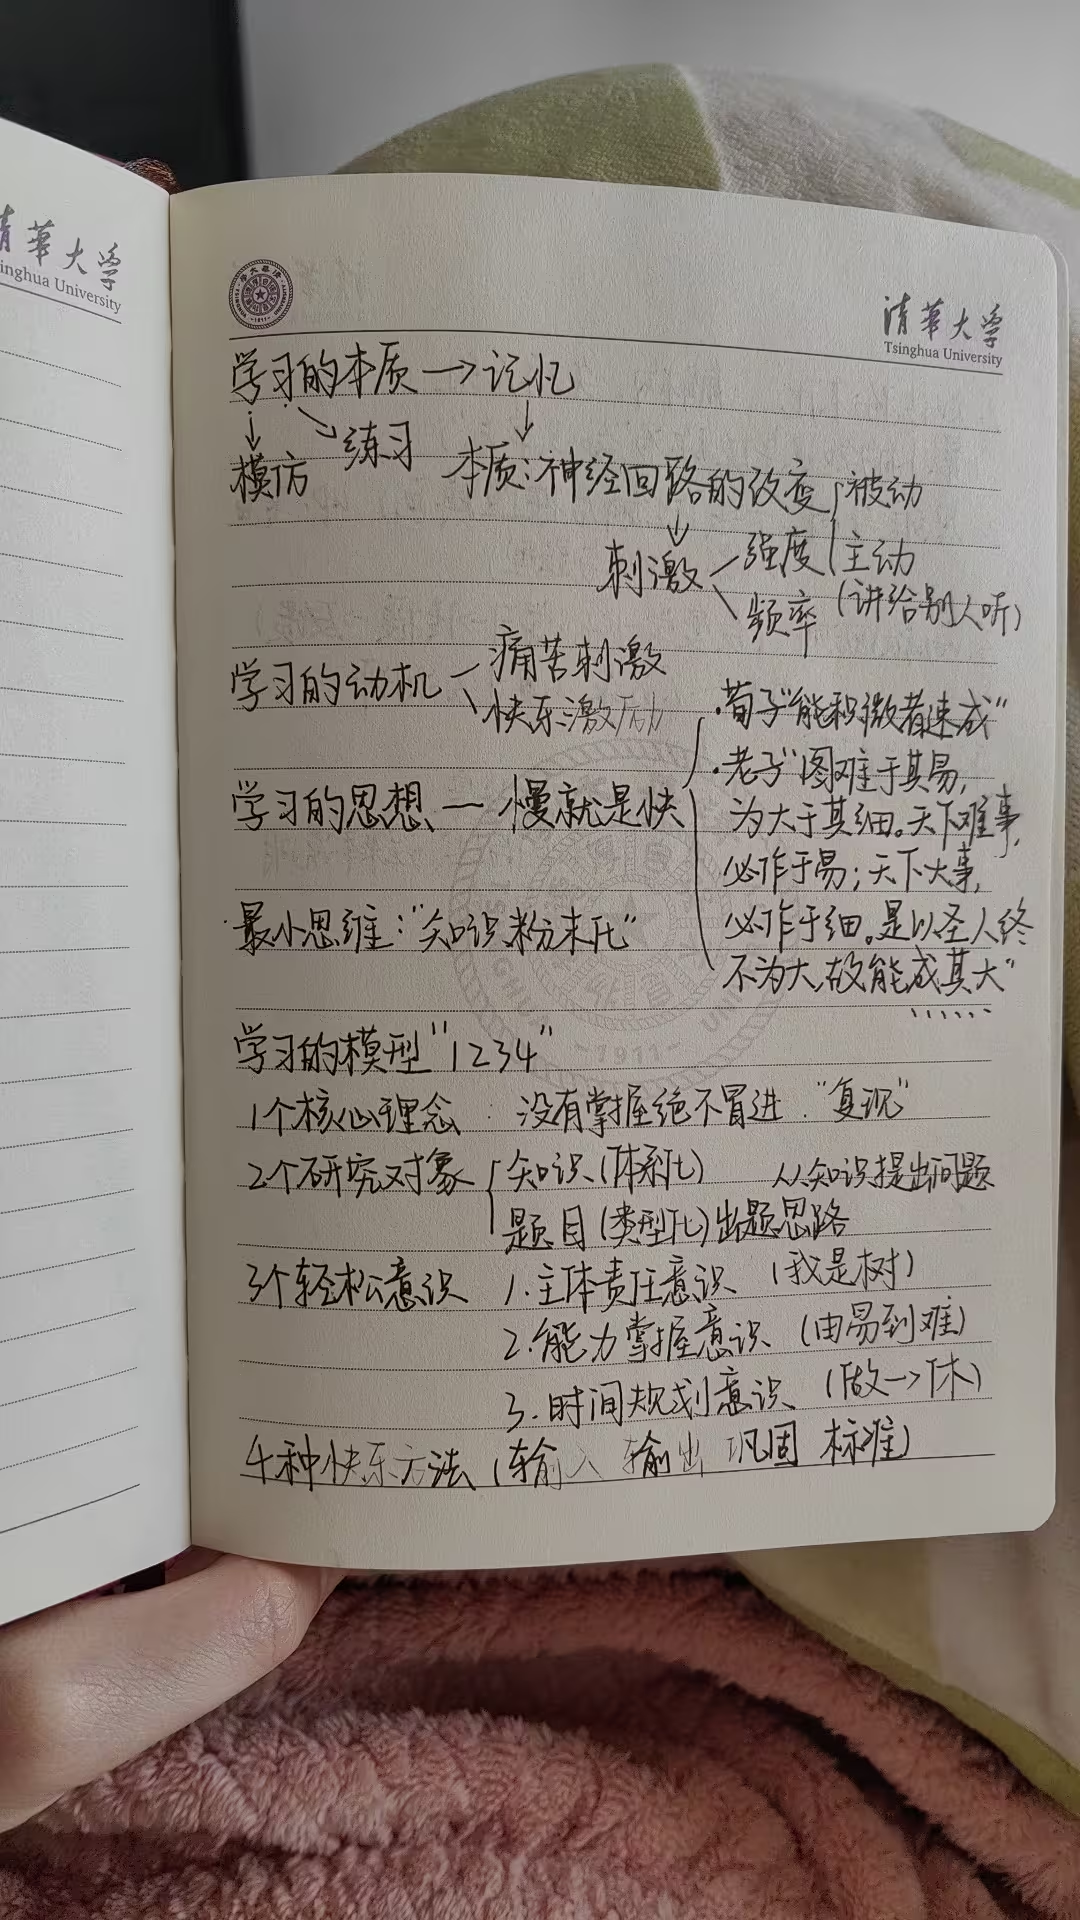 清華大学
Tsinghua University
清華大学
Tsinghua University
学习的本质→记忆
模仿 练习 本质：神经回路的改变 被动
刺激 强度 主动
频率 (讲给别人听)
学习的动机 痛苦刺激
快乐激励
学习的思想 — 慢就是快
·荀子"能积微者速成"
·老子"图难于其易，
为大于其细。天下难事，
必作于易；天下大事，
必作于细。是以圣人终
不为大，故能成其大"
......
·最小思维："知识粉末化"
学习的模型"1234"
1个核心理念：没有掌握绝不冒进."复现"
2个研究对象 知识(体系化) 从知识提出问题
题目(类型化)出题思路
3个轻松意识 1.主体责任意识 (我是树)
2.能力掌握意识 (由易到难)
3.时间规划意识 (做→休)
4种快乐方法(输入 输出 巩固 标准)
-1911-